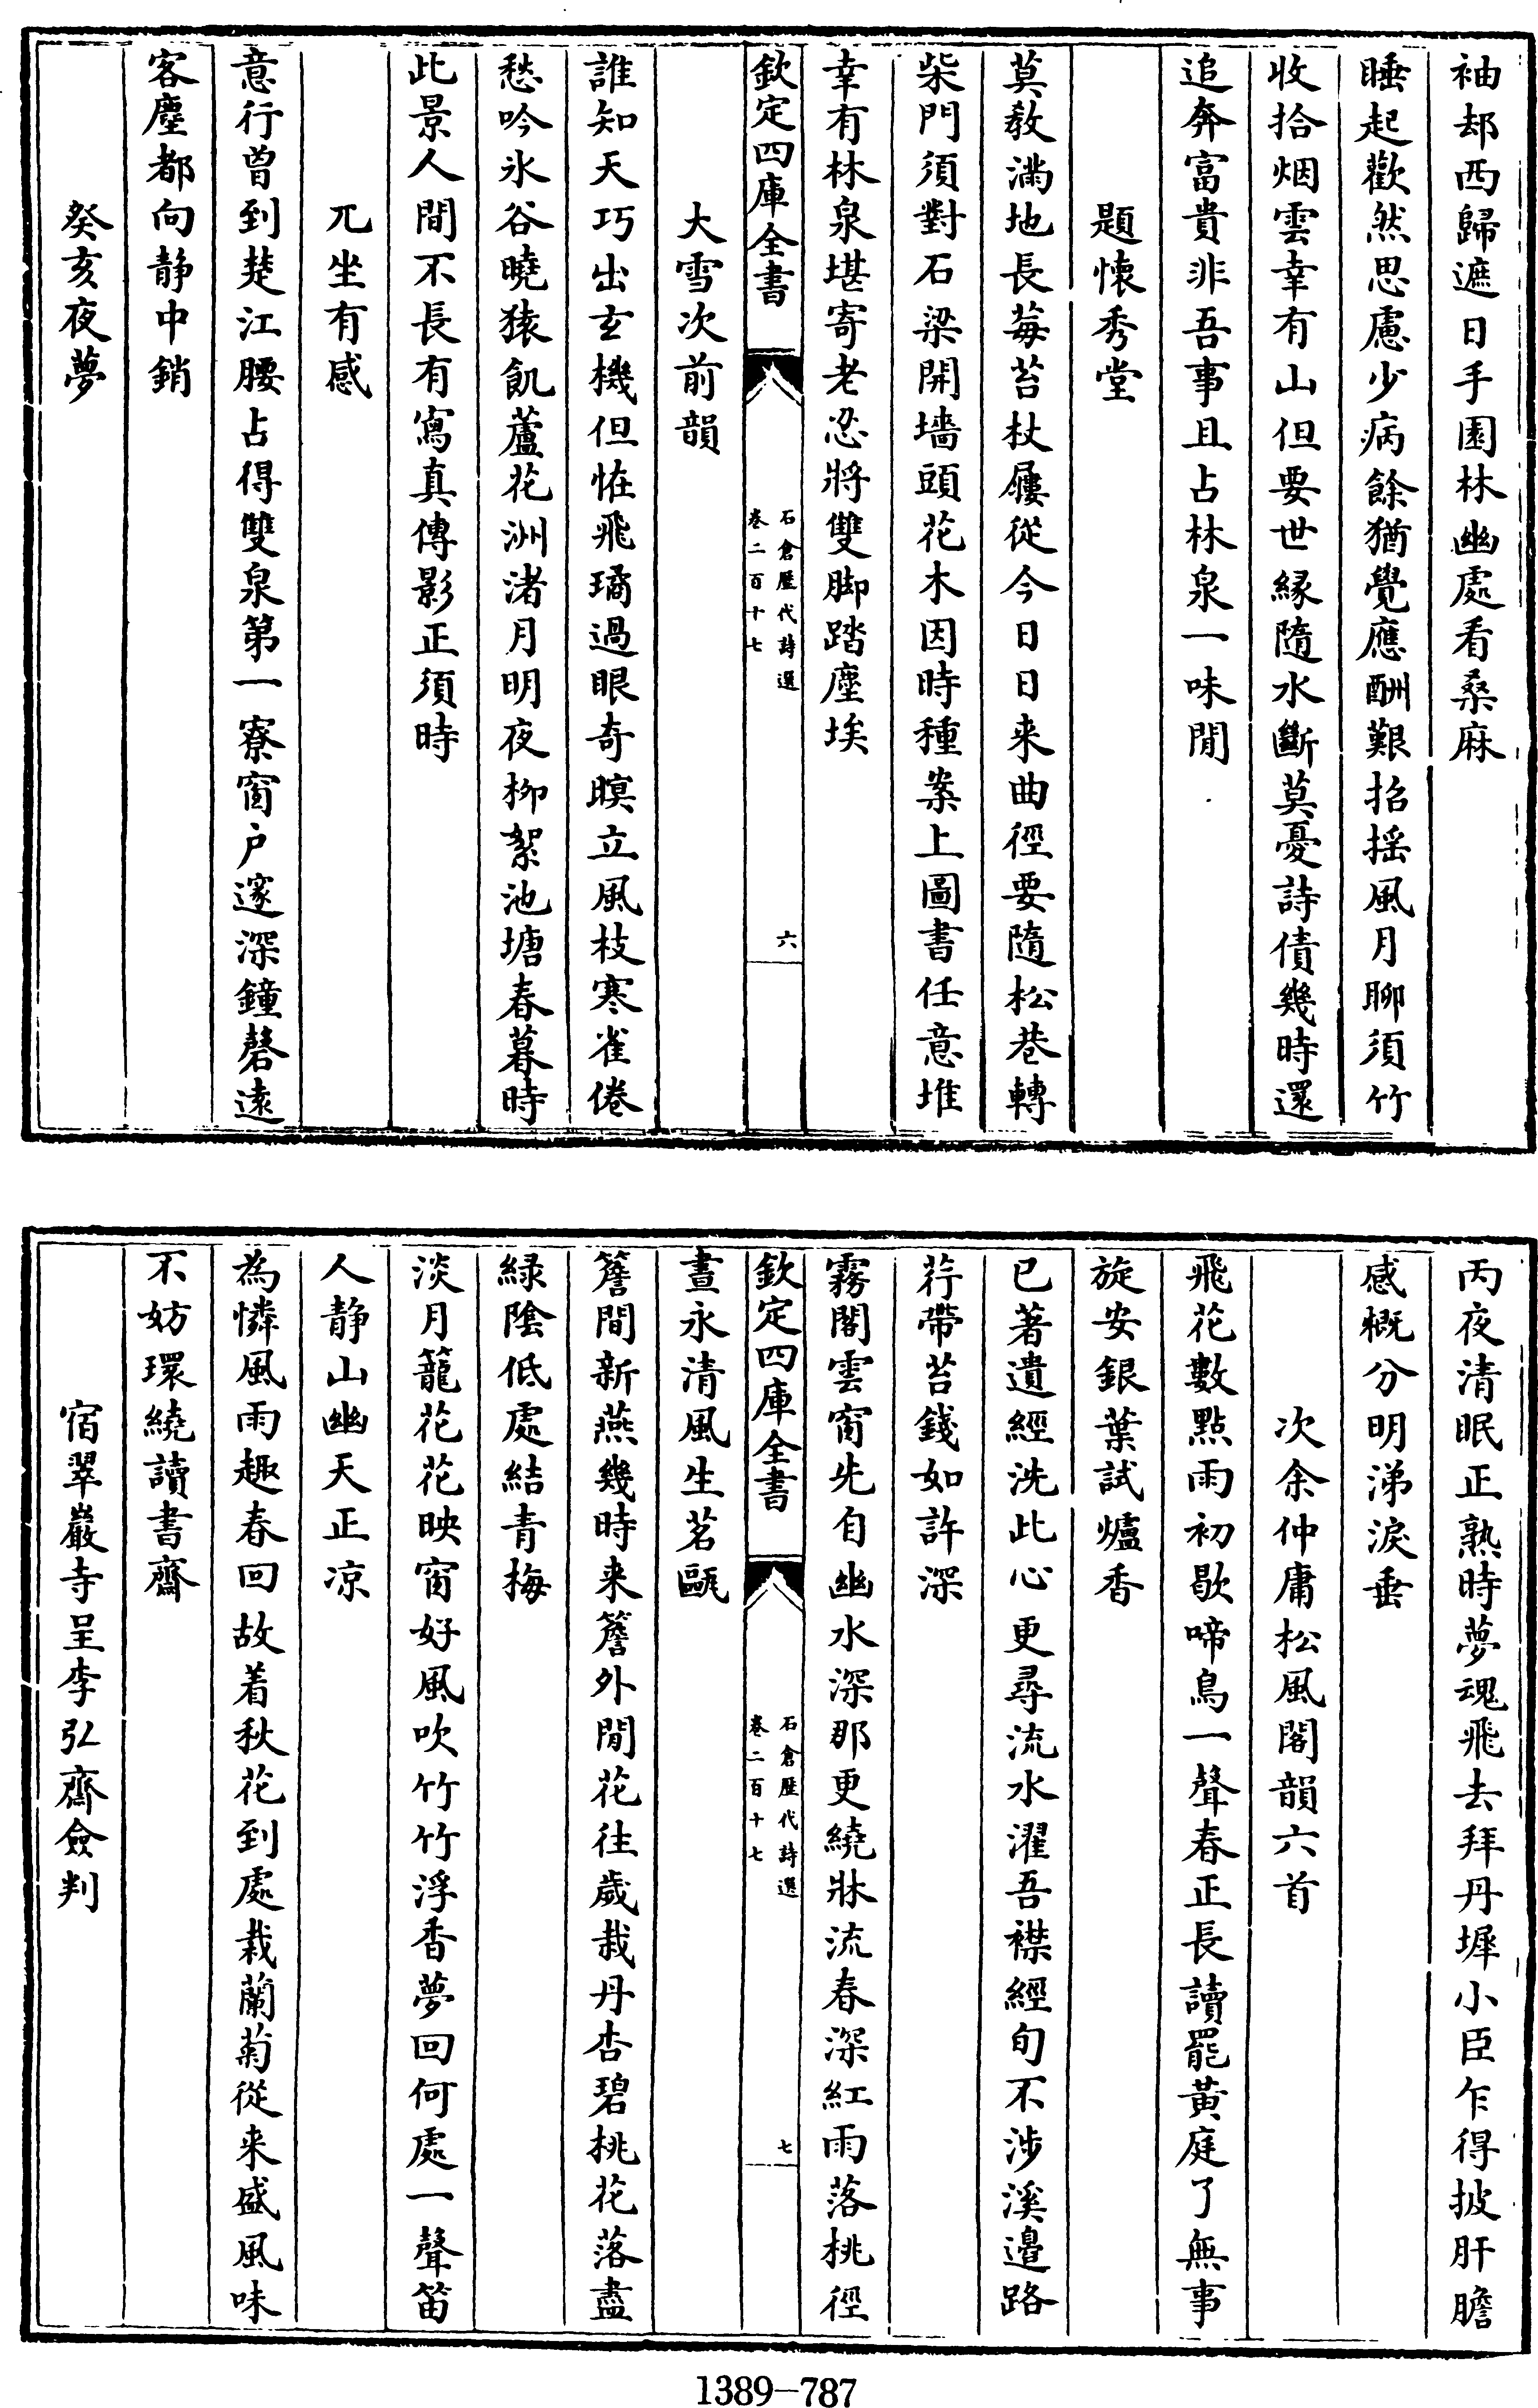 袖却西歸遮日手園林幽處看桑麻
睡起歡然思慮少病餘猶覺應酬艱招搖風月聊須竹
收拾烟雲幸有山但要世緣隨水斷莫憂詩債幾時還
追奔富貴非吾事且占林泉一味閒
題懷秀堂
莫教滿地長莓苔杖屨從今日日来曲徑要隨松巷轉
柴門須對石梁開墻頭花木因時種案上圖書任意堆
幸有林泉堪寄老忍將雙脚踏塵埃
欽定四庫全書
石倉歷代詩選
卷二百十七
六
大雪次前韻
誰知天巧出玄機但恠飛璚過眼奇暝立風枝寒雀倦
愁吟氷谷曉猿飢蘆花洲渚月明夜柳絮池塘春暮時
此景人間不長有寫真傳影正須時
兀坐有感
意行曾到楚江腰占得雙泉第一寮窗户邃深鐘磬遠
客塵都向静中銷
癸亥夜夢
丙夜清眠正熟時夢魂飛去拜丹墀小臣乍得披肝膽
感概分明涕淚垂
次余仲庸松風閣韻六首
飛花數點雨初歇啼鳥一聲春正長讀罷黄庭了無事
旋安銀葉試爐香
已著遺經洗此心更尋流水濯吾襟經旬不涉溪邉路
荇帶苔錢如許深
霧閣雲窗先自幽水深那更繞牀流春深紅雨落桃徑
晝永清風生茗甌
欽定四庫全書
石倉歷代詩選
卷二百十七
七
簷間新燕幾時来簷外閒花往歲栽丹杏碧桃花落盡
緑陰低處結青梅
淡月籠花花映窗好風吹竹竹浮香夢回何處一聲笛
人静山幽天正凉
為憐風雨趣春回故着秋花到處栽蘭菊從来盛風味
不妨環繞讀書齋
宿翠巖寺呈李弘齋僉判
1389-787